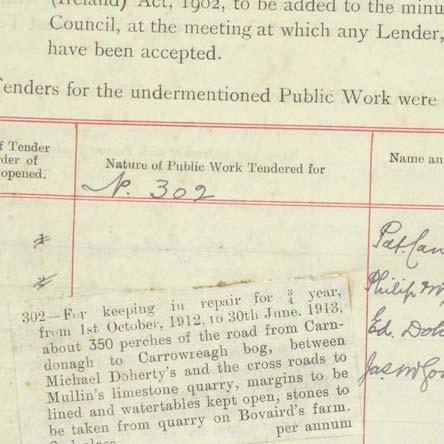 (Ireland) Act, 1902, to be added to the minu
Council, at the meeting at which any Lender,
have been accepted.
Tenders for the undermentioned Public Work were
f Tender
der of
opened.
Nature of Public Work Tendered for
Name an
No. 302
Pat. Can
Philip
Ed. Doh
Jas. McGo
302—For keeping in repair for ¾ year,
from 1st October, 1912, to 30th June. 1913,
about 350 perches of the road from Carn-
donagh to Carrowreagh bog, between
Michael Doherty's and the cross roads to
Mullin's limestone quarry, margins to be
lined and watertables kept open, stones to
be taken from quarry on Bovaird's farm.
per annum